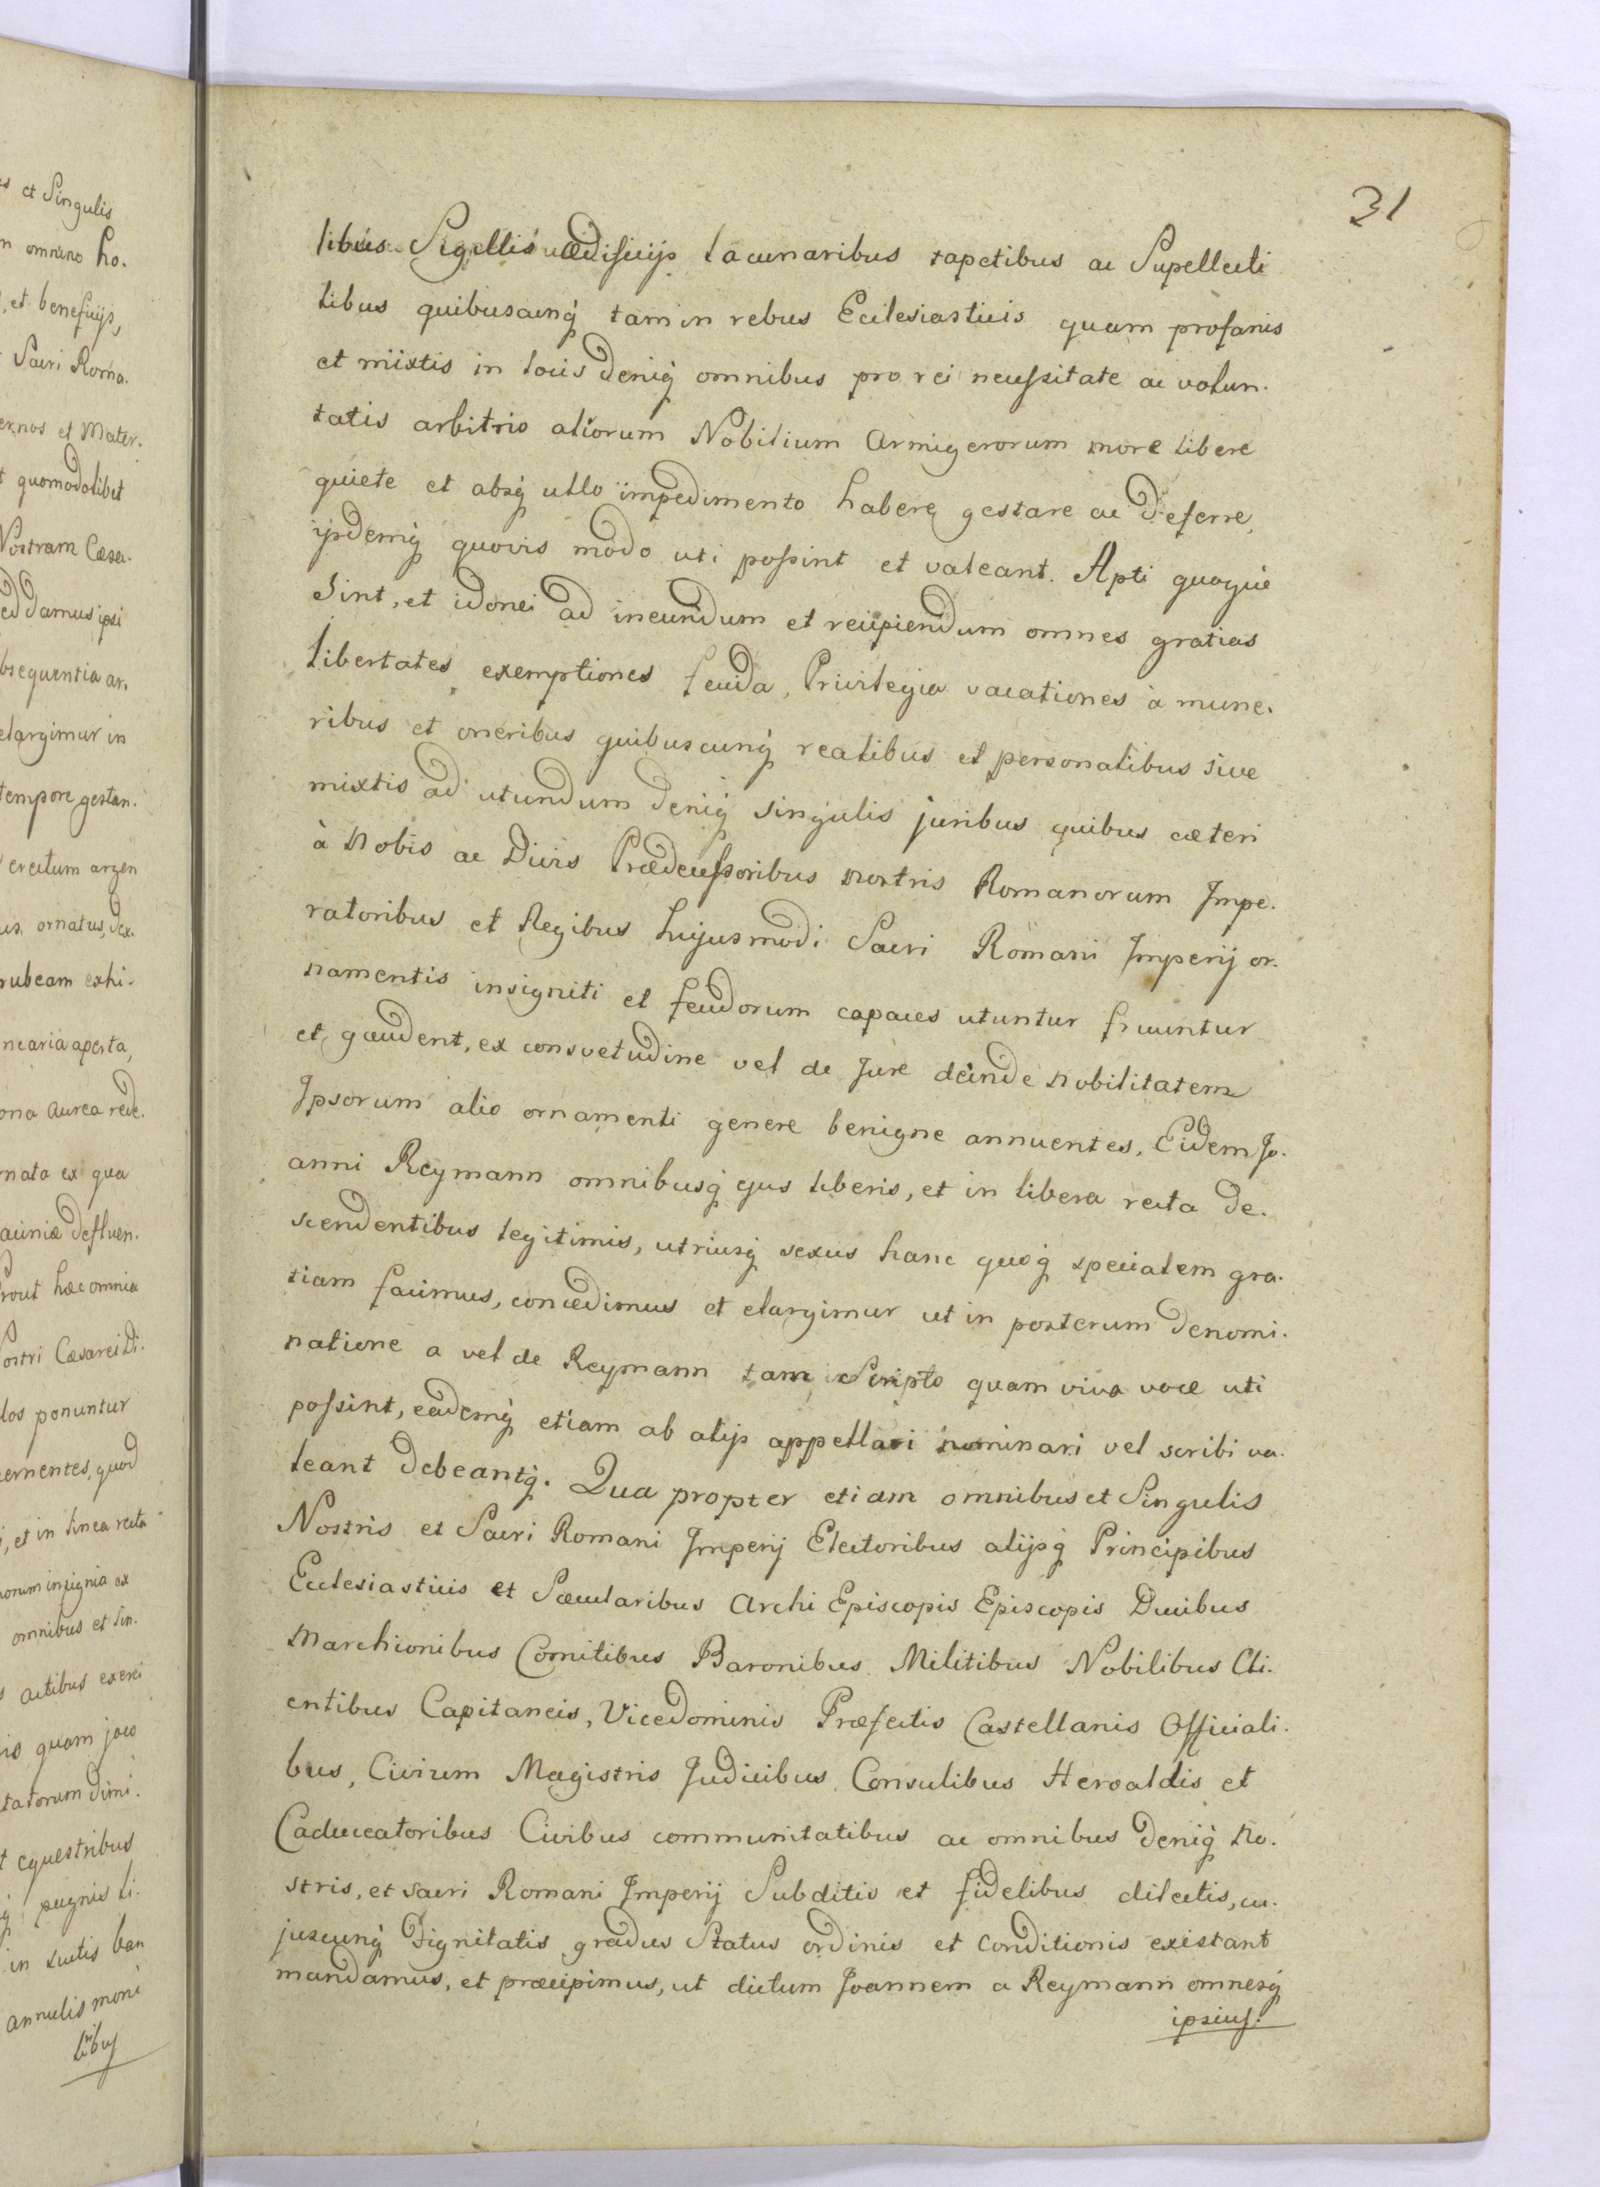 31
libus Sigillis ædificijs lacunaribus tapetibus ac Supellecti
libus quibuscunq́ tam in rebus Ecclesiasticis quam profanis
et mixtis in locis deniq́ omnibus pro rei necessitate ac volun.
tatis arbitrio aliorum Nobilium Armigerorum more libere
quiete et absq́ ullo impedimento habere gestare ac deferre,
ijsdemq́ quovis modo uti possint et valeant. Apti quoque
sint, et idonei ad ineundum et recipiendum omnes gratias
libertates exemptiones feuda, Privilegia vacationes à mune.
ribus et oneribus quibuscunq́ realibus et personalibus sive
mixtis ad utundum deniq́ singulis juribus quibus cæteri
à Nobis ac Divis Prædecessoribus nostris Romanorum Impe.
ratoribus et Regibus hujusmodi Sacri Romani Imperij or.
namentis insigniti et feudorum capaces utuntur fruuntur
et gaudent, ex consvetudine vel de jure deinde nobilitatem
Ipsorum alio ornamenti genere benigne annuentes, Eidem Jo.
anni Reymann omnibusq́ ejus liberis, et in libera recta de.
scendentibus legitimis, utriusq́ sexus hanc quoq́ specialem gra.
tiam facimus, concedimus et elargimur ut in posterum denomi.
natione a vel de Reymann tam Scripto quam viva voce uti
possint, eademq́ etiam ab alijs appellari nominari vel scribi va.
leant debeantq́. Qua propter etiam omnibus et Singulis
Nostris et Sacri Romani Imperij Electoribus alijsq́ Principibus
Ecclesiasticis et Sæcularibus Archi Episcopis Episcopis Ducibus
Marchionibus Comitibus Baronibus Militibus Nobilibus Cli.
entibus Capitaneis, Vicedominis Præfectis Castellanis Officiali.
bus, Civium Magistris Judicibus Consulibus Heroaldis et
Caduceatoribus Civibus communitatibus ac omnibus deniq́ No.
stris, et sacri Romani Imperij Subditis et fidelibus dilectis, cu.
juscunq́ Dignitatis gradus Status ordinis et Conditionis existant
mandamus, et præcipimus, ut dictum Joannem a Reymann omnesq́
ipsius.
et Singulis
omnino ho.
, et beneficijs,
Sacri Roma.
et Mater.
quomodolibet
Nostram Cæsa.
damus ipsi
ar.
elargimur in
tempore gestan.
erectum argen
ornatus, dex.
rubeam exhi.
aperta,
aurea rede.
ex qua
defluen.
hæc omnia
Cæsarei Di.
ponuntur
quod
, et in linea recta
insignia ex
omnibus et Sin.
actibus exerci
quam joco
dimi.
equestribus
pugnis li.
in scutis ban
annulis moni
libus